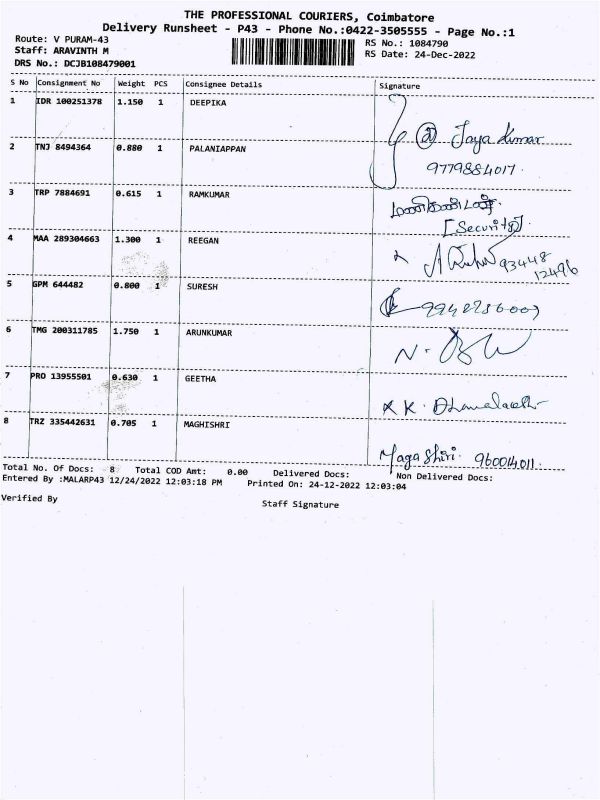 THE PROFESSIONAL COURIERS, Coimbatore
Delivery Runsheet - P43 - Phone No.:0422-3505555 - Page No.:1
Route: V PURAM-43
Staff: ARAVINTH M
DRS No.: DCJB108479001
RS No.: 1084790
RS Date: 24-Dec-2022
S No Consignment No Weight PCS Consignee Details Signature
1 IDR 100251378 1.150 1 DEEPIKA
Jaya Kumar
2 TNJ 8494364 0.880 1 PALANIAPPAN
9779884017.
3 TRP 7884691 0.615 1 RAMKUMAR
[Security].
4 MAA 289304663 1.300 1 REEGAN
93448
12496
5 GPM 644482 0.800 1 SURESH
6 TMG 200311785 1.750 1 ARUNKUMAR
N.
7 PRO 13955501 0.630 1 GEETHA
K.
8 TRZ 335442631 0.705 1 MAGHISHRI
Maga Shiri. 960014011.
Total No. Of Docs: 8 Total COD Amt: 0.00 Delivered Docs: Non Delivered Docs:
Entered By :MALARP43 12/24/2022 12:03:18 PM Printed On: 24-12-2022 12:03:04
Verified By Staff Signature